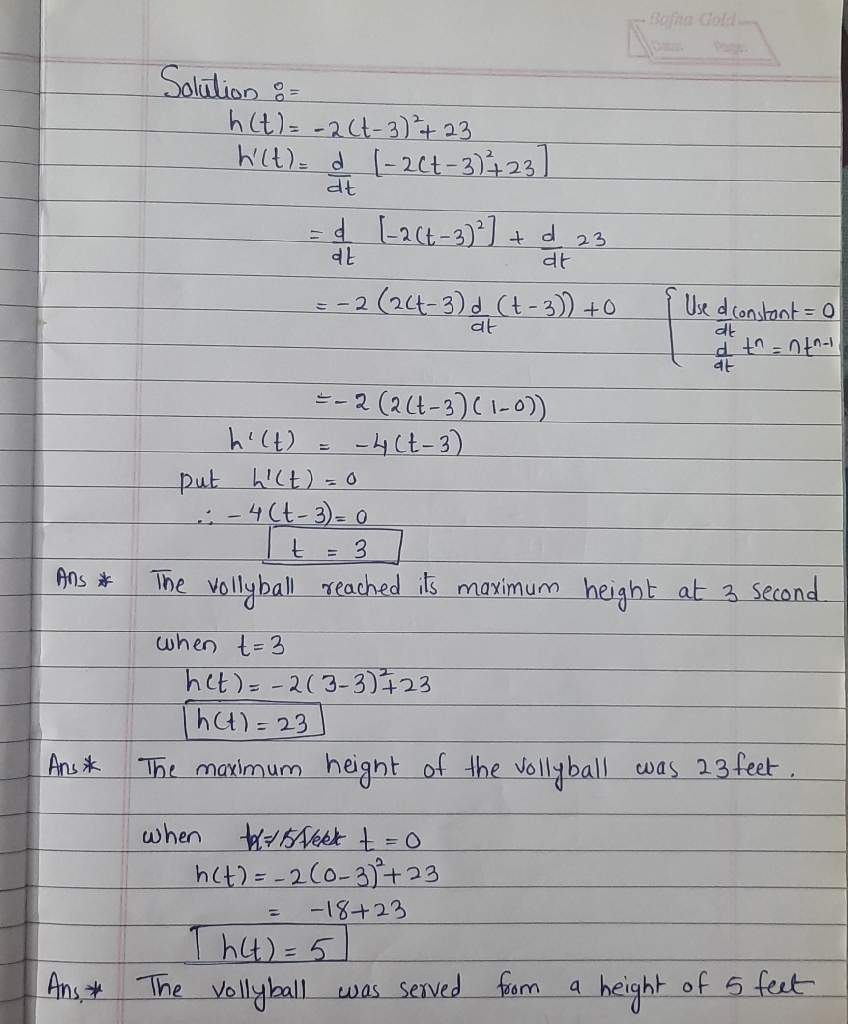 Bafna Gold
Date: Page:
Solution :=
h(t) = -2(t-3)²+ 23
h'(t) = d/dt [-2(t-3)²+23]
= d/dt [-2(t-3)²] + d/dt 23
= -2 (2(t-3) d/dt (t-3)) +0 { Use d/dt constant = 0
d/dt tⁿ = ntⁿ⁻¹
= -2 (2(t-3)(1-0))
h'(t) = -4(t-3)
put h'(t) = 0
∴ -4(t-3)= 0
t = 3
Ans * The vollyball reached its maximum height at 3 second.
when t=3
h(t) = -2(3-3)²+23
h(t) = 23
Ans * The maximum height of the vollyball was 23 feet.
when t = 0
h(t) = -2(0-3)²+23
= -18+23
h(t) = 5
Ans * The vollyball was served from a height of 5 feet